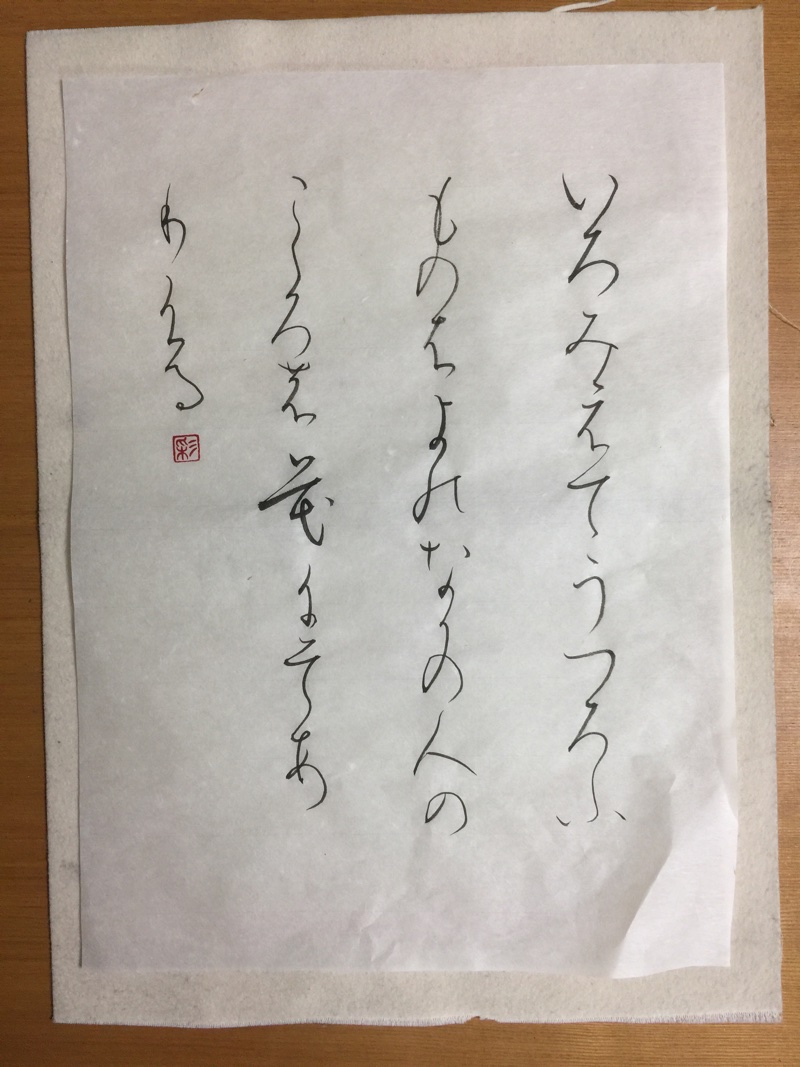 いろみえてうつろふ
ものはよのなかの人の
こゝろの花にそあ
りける
彩